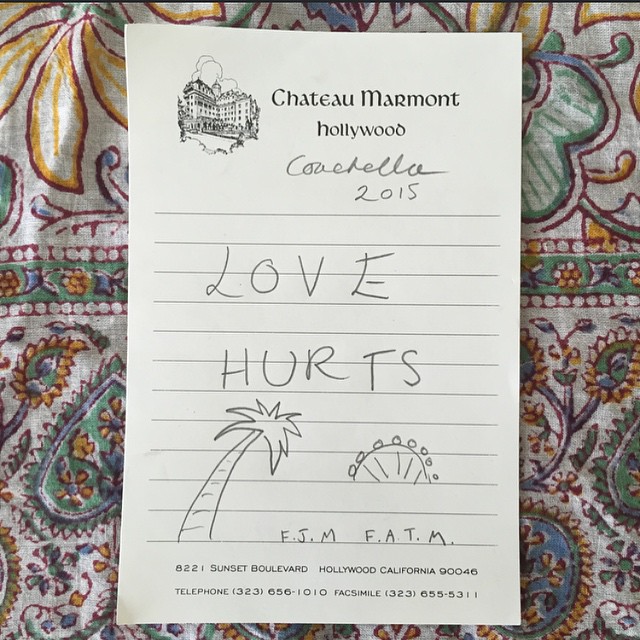 Chateau Marmont
Hollywood
Coachella
2015
LOVE
HURTS
F.J.M F.A.T.M.
8221 SUNSET BOULEVARD HOLLYWOOD CALIFORNIA 90046
TELEPHONE (323) 656-1010 FACSIMILE (323) 655-5311